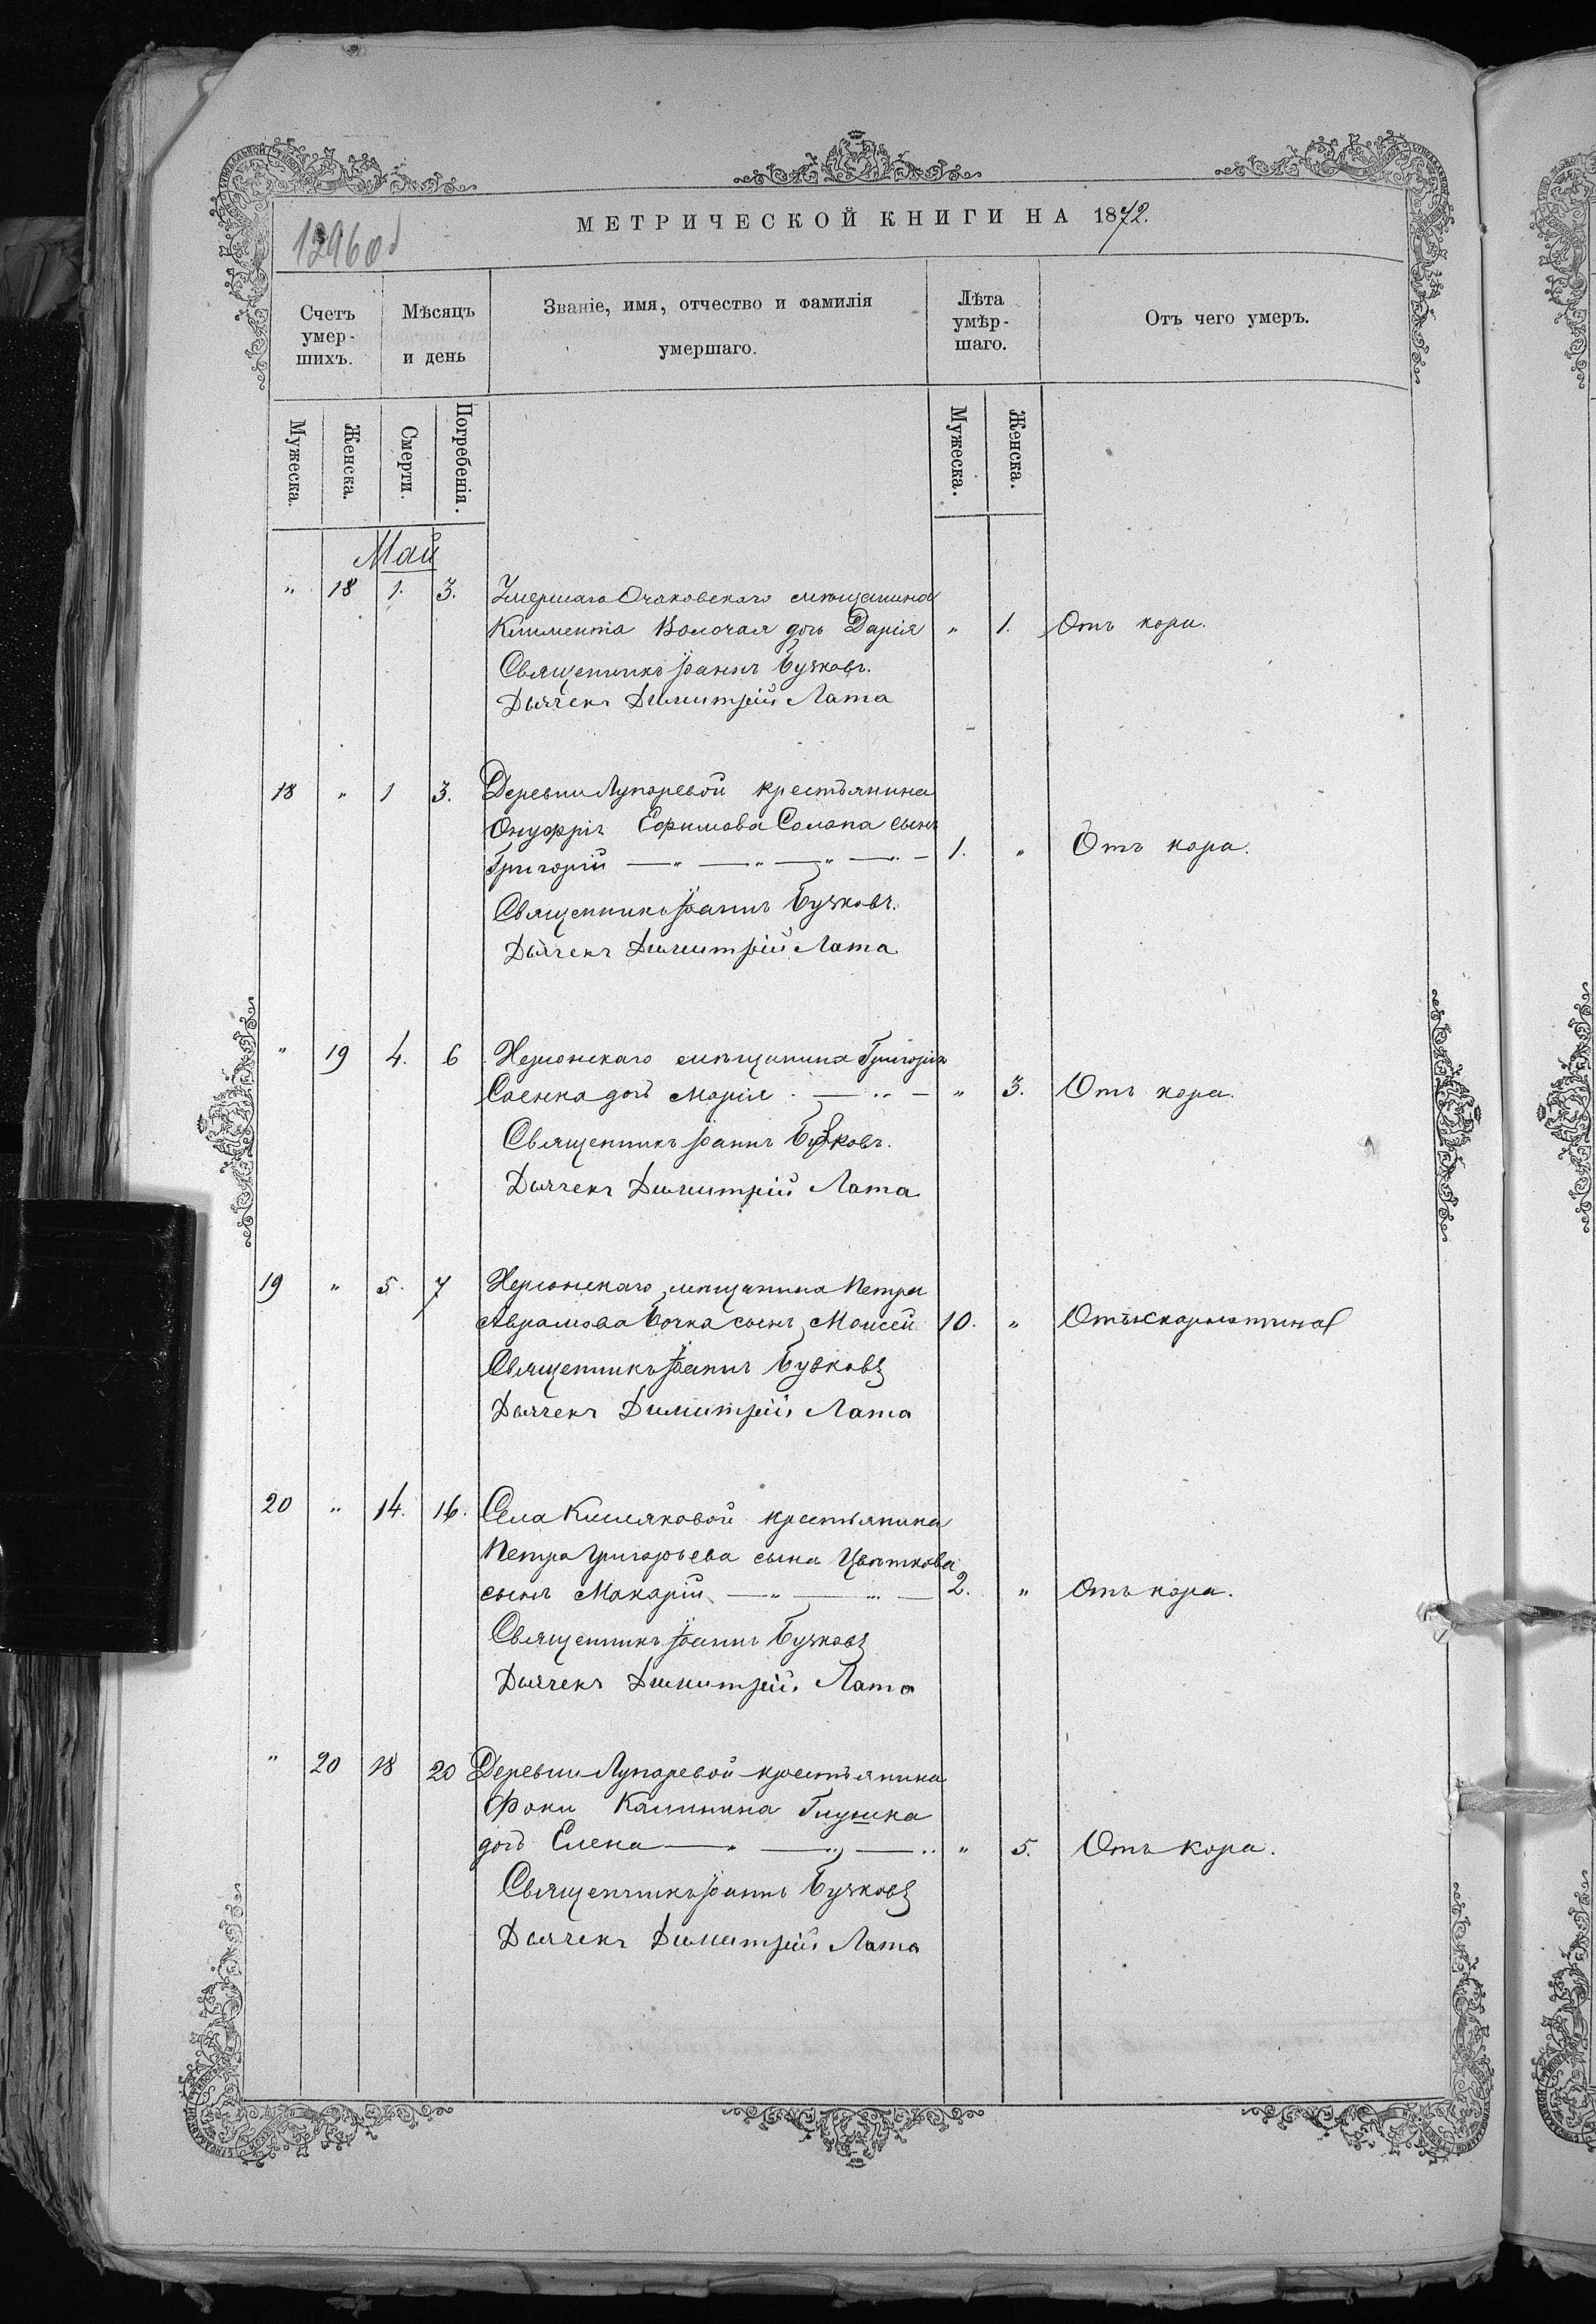 МЕТРИЧЕСКОЙ КНИГИ НА 1872.
12960
Счетъ умер-шихъ.
Мѣсяцъ и день
Званіе, имя, отчество и фамилія умершаго.
Лѣта умѣр-шаго.
Отъ чего умеръ.
Мужеска. Женска. Смерти. Погребенія. Мужеска. Женска.
Май
" 18 1. 3. Умершаго Очаковскаго мѣщанина
Климента Волочая дочь Дарія " 1. Отъ кори.
Священникъ Іоаннъ Бучковъ.
Дьячекъ Димитрій Лата
18 " 1 3. Деревни Лупаревой крестьянина
Онуфрія Ефимова Солопа сынъ
Григорій — " — " — " — " — 1. " Отъ кора.
Священникъ Іоаннъ Бучковъ.
Дьячекъ Димитрій Лата
" 19 4. 6 Херсонскаго мѣщанина Григорія
Саенка дочь Марія — " — " 3. Отъ кора.
Священникъ Іоаннъ Бучковъ.
Дьячекъ Димитрій Лата
19 " 5. 7 Херсонскаго мѣщанина Петра
Аврамова Бочка сынъ Моисей 10. " Отъ скарлатина
Священникъ Іоаннъ Бучковъ
Дьячекъ Димитрій Лата
20 " 14. 16. Села Кисляковой крестьянина
Петра Григорьева сына Цвѣткова
сынъ Макарій — " — " — 2. " Отъ кора.
Священникъ Іоаннъ Бучковъ
Дьячекъ Димитрій Лата
" 20 18 20 Деревни Лупаревой крестьянина
Фоки Калинина Глушка
дочь Елена — " — " — " " 5. Отъ кора.
Священникъ Іоаннъ Бучковъ
Дьячекъ Димитрій Лата